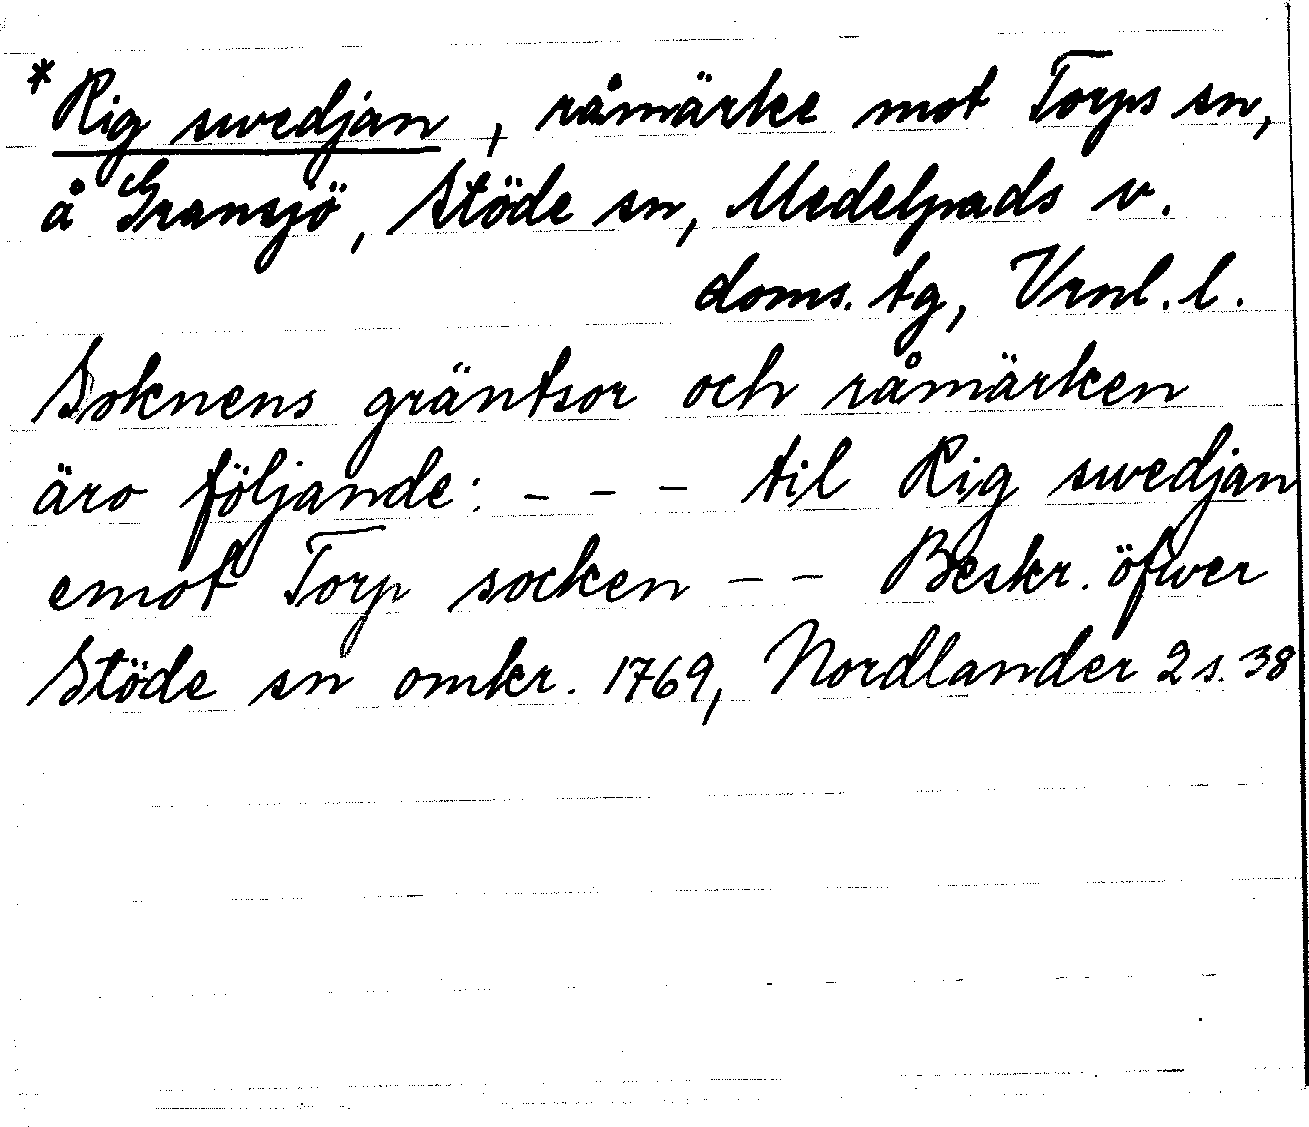 *Rig swedjan, råmärke mot Torps sn,
å Gransjö, Stöde sn, Medelpads v.
doms. tg, Vrnl. l.
Soknens gräntsor och råmärken
äro följande: - - - til Rig swedjan
emot Torp socken - - Beskr. öfwer
Stöde sn omkr. 1769, Nordlander 2 s. 38